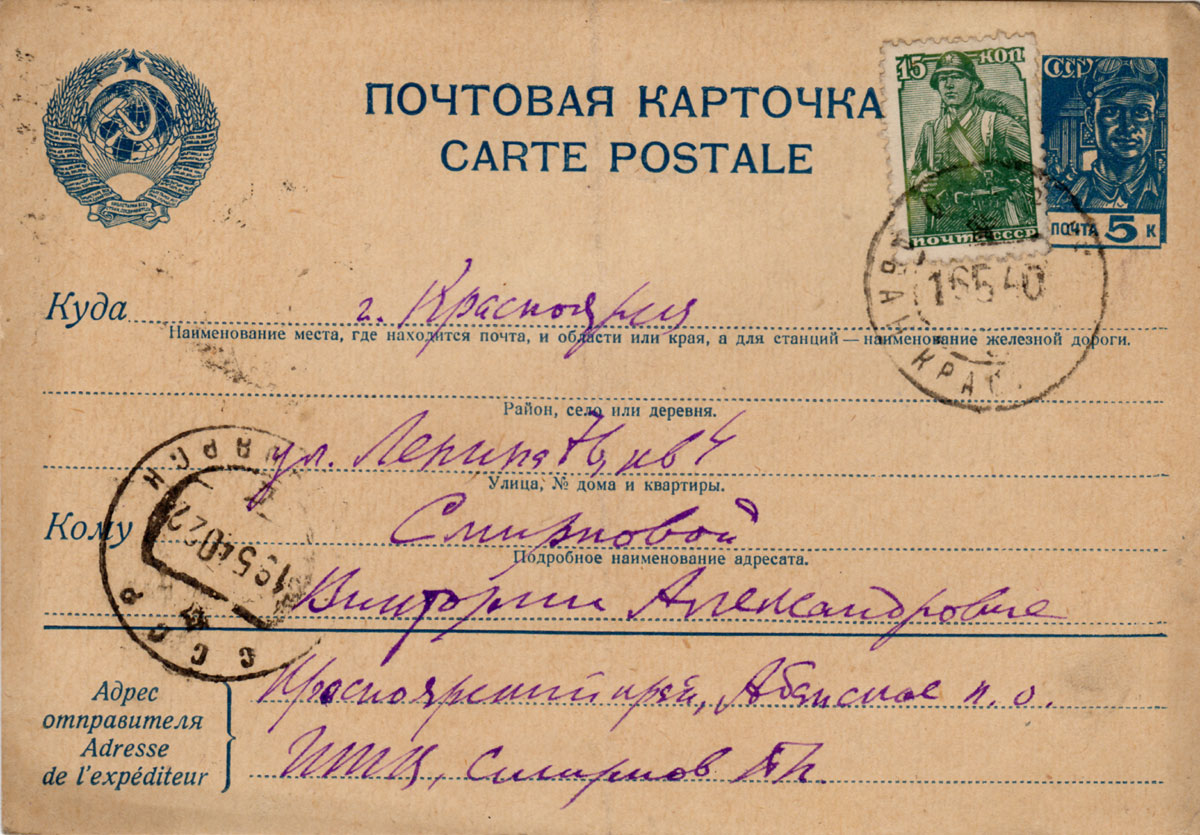 ПОЧТОВАЯ КАРТОЧКА
CARTE POSTALE
15 КОП
ПОЧТА СССР
СССР
ПОЧТА 5 К
АБАН КРАС.
16 5 40
Куда г. Красноярск
Наименование места, где находится почта, и области или края, а для станций — наименование железной дороги.
Район, село или деревня.
ул. Ленина кв 4
Улица, № дома и квартиры.
Кому Смирновой
Подробное наименование адресата.
Виктории Александровне
19 5 40 22
СССР
Адрес отправителя
Adresse de l'expéditeur
Красноярский край, Абанское п. о.
Смирнов